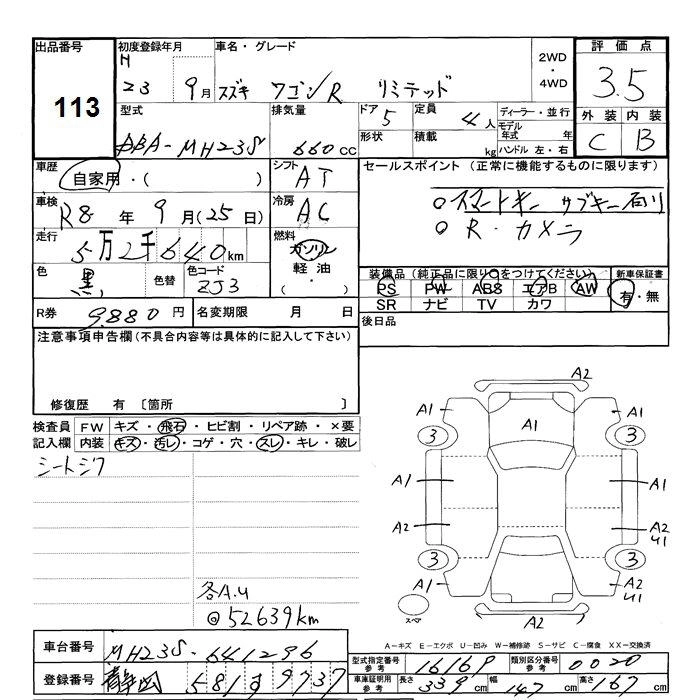 出品番号 初度登録年月 車名・グレード 2WD・4WD 評価点
113 H 23 9月 スズキ ワゴンR リミテッド 3.5
型式 排気量 ドア 定員 ディーラー・並行 外装 内装
DBA-MH23S 660CC 5 4人 モデル年式 年 C B
形状 積載 kg ハンドル 左・右
車歴 自家用・( ) シフト AT セールスポイント (正常に機能するものに限ります)
車検 R8年 9月(25日) 冷房 AC スマートキー サブキー有り
R・カメラ
走行 5万2千640km 燃料 ガソリン 軽油 ・( )
色 黒 色替 色コード ZJ3 装備品(純正品に限り○をつけてください) 新車保証書
PS PW ABS エアB AW 有・無
SR ナビ TV カワ
R券 9,880円 名変期限 月 日 後日品
注意事項申告欄(不具合内容等は具体的に記入して下さい)
修復歴 有 〔箇所 〕
検査員 FW キズ・飛石・ヒビ割・リペア跡・×要
記入欄 内装 キズ・汚レ・コゲ・穴・スレ・キレ・破レ
シートシワ
各A.U
@52639km
A2
A1 A1 A1
3 3
A1 A1
A2 A2 U1
3 3
A1 A2 U1
スペア A2
A-キズ E-エクボ U-凹み W-補修跡 S-サビ C-腐食 XX-交換済
車台番号 MH23S-641296 型式指定番号 参考 16169 類別区分番号 参考 0020
登録番号 静岡 581 す 9737 車庫証明用 参考 長さ 339cm 幅 147cm 高さ 167cm